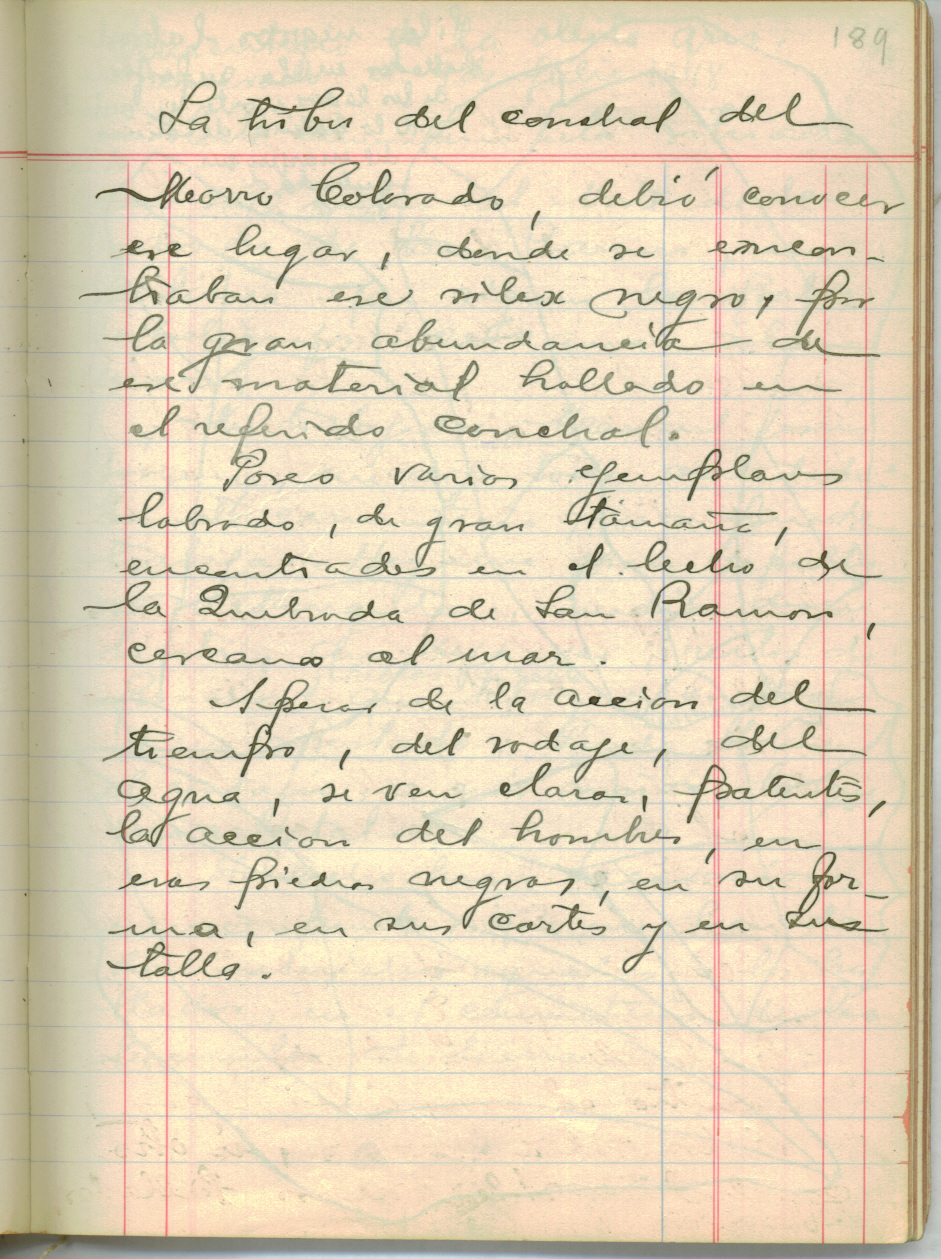 189
La tribu del conchal del
Morro Colorado, debió conocer
ese lugar, donde se encon-
traban ese silex negro, por
la gran abundancia de
ese material hallado en
el referido conchal.
Poseo varios ejemplares
labrado, de gran tamaño,
encontrados en el lecho de
la Quebrada de San Ramon,
cercano al mar.
Apesar de la accion del
tiempo, del rodaje, del
agua, se ven claras, patentes,
la accion del hombre, en
esas piedras negras, en su for-
ma, en sus cortes y en sus
talla.